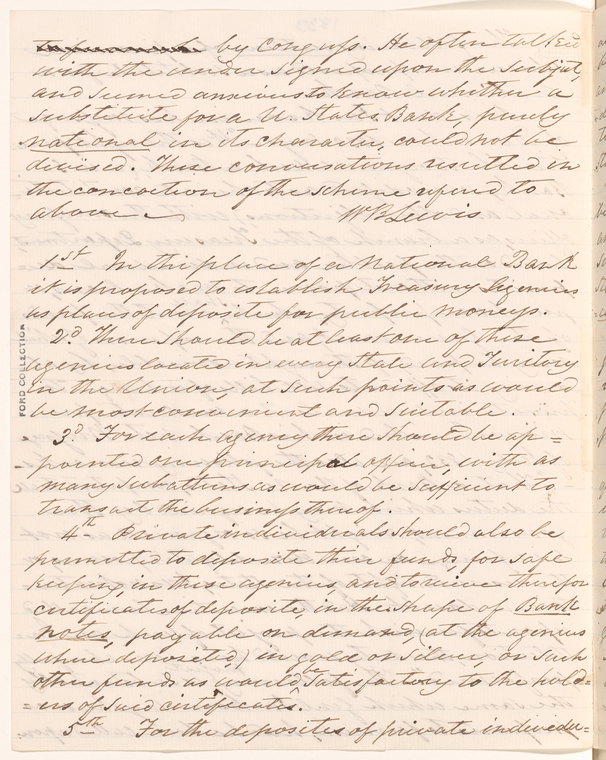 by congress. He often talked
with the under signed upon the subject,
and seemed anxious to know whether a
substitute for a U. States Bank, purely
national in its character, could not be
devised. These conversations resulted in
the concoction of the scheme refered to
above. W B Lewis
1st In the place of a National Bank
it is proposed to establish Treasury Agencies
as places of deposite for public moneys.
2d There should be at least one of these
agencies located in every State and Territory
in the Union, at such points as would
be most convenient and suitable.
3d For each agency there should be ap=
pointed one principal officer, with as
many subalterns as would be sufficient to
transact the business thereof.
4th Private individuals should also be
permitted to deposite their funds, for safe
keeping, in these agencies, and to receive therefor
certificates of deposite, in the shape of Bank
notes, payable on demand (at the agencies
where deposited) in gold or silver, or such
other funds as would be satisfactory to the hold=
=ers of said certificates.
5th For the deposites of private individu=
FORD COLLECTION